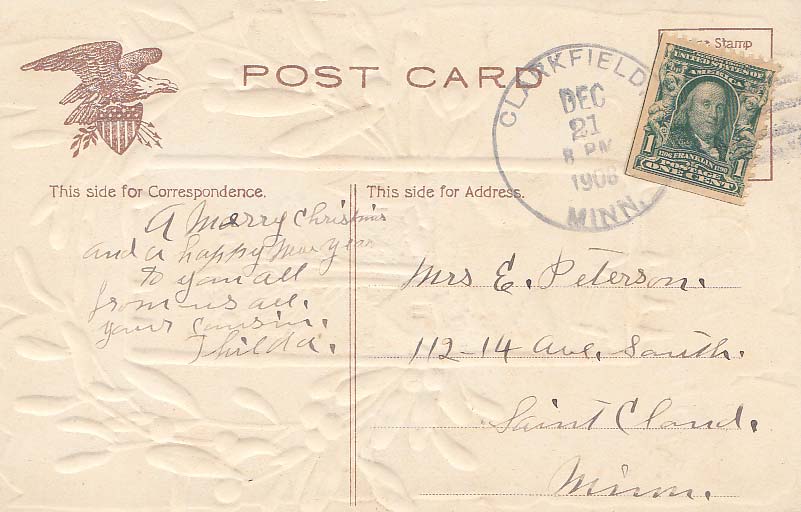 POST CARD
Stamp
CLARKFIELD,
DEC
21
8 PM
1908
MINN.
UNITED STATES OF
AMERICA
1 1
FRANKLIN
POSTAGE
ONE CENT
This side for Correspondence.
This side for Address.
A Merry Christmas
and a happy New Year
to you all
from us all.
your cousin.
Thilda.
Mrs E. Peterson.
112-14 Ave. South.
Saint Cloud.
Minn.